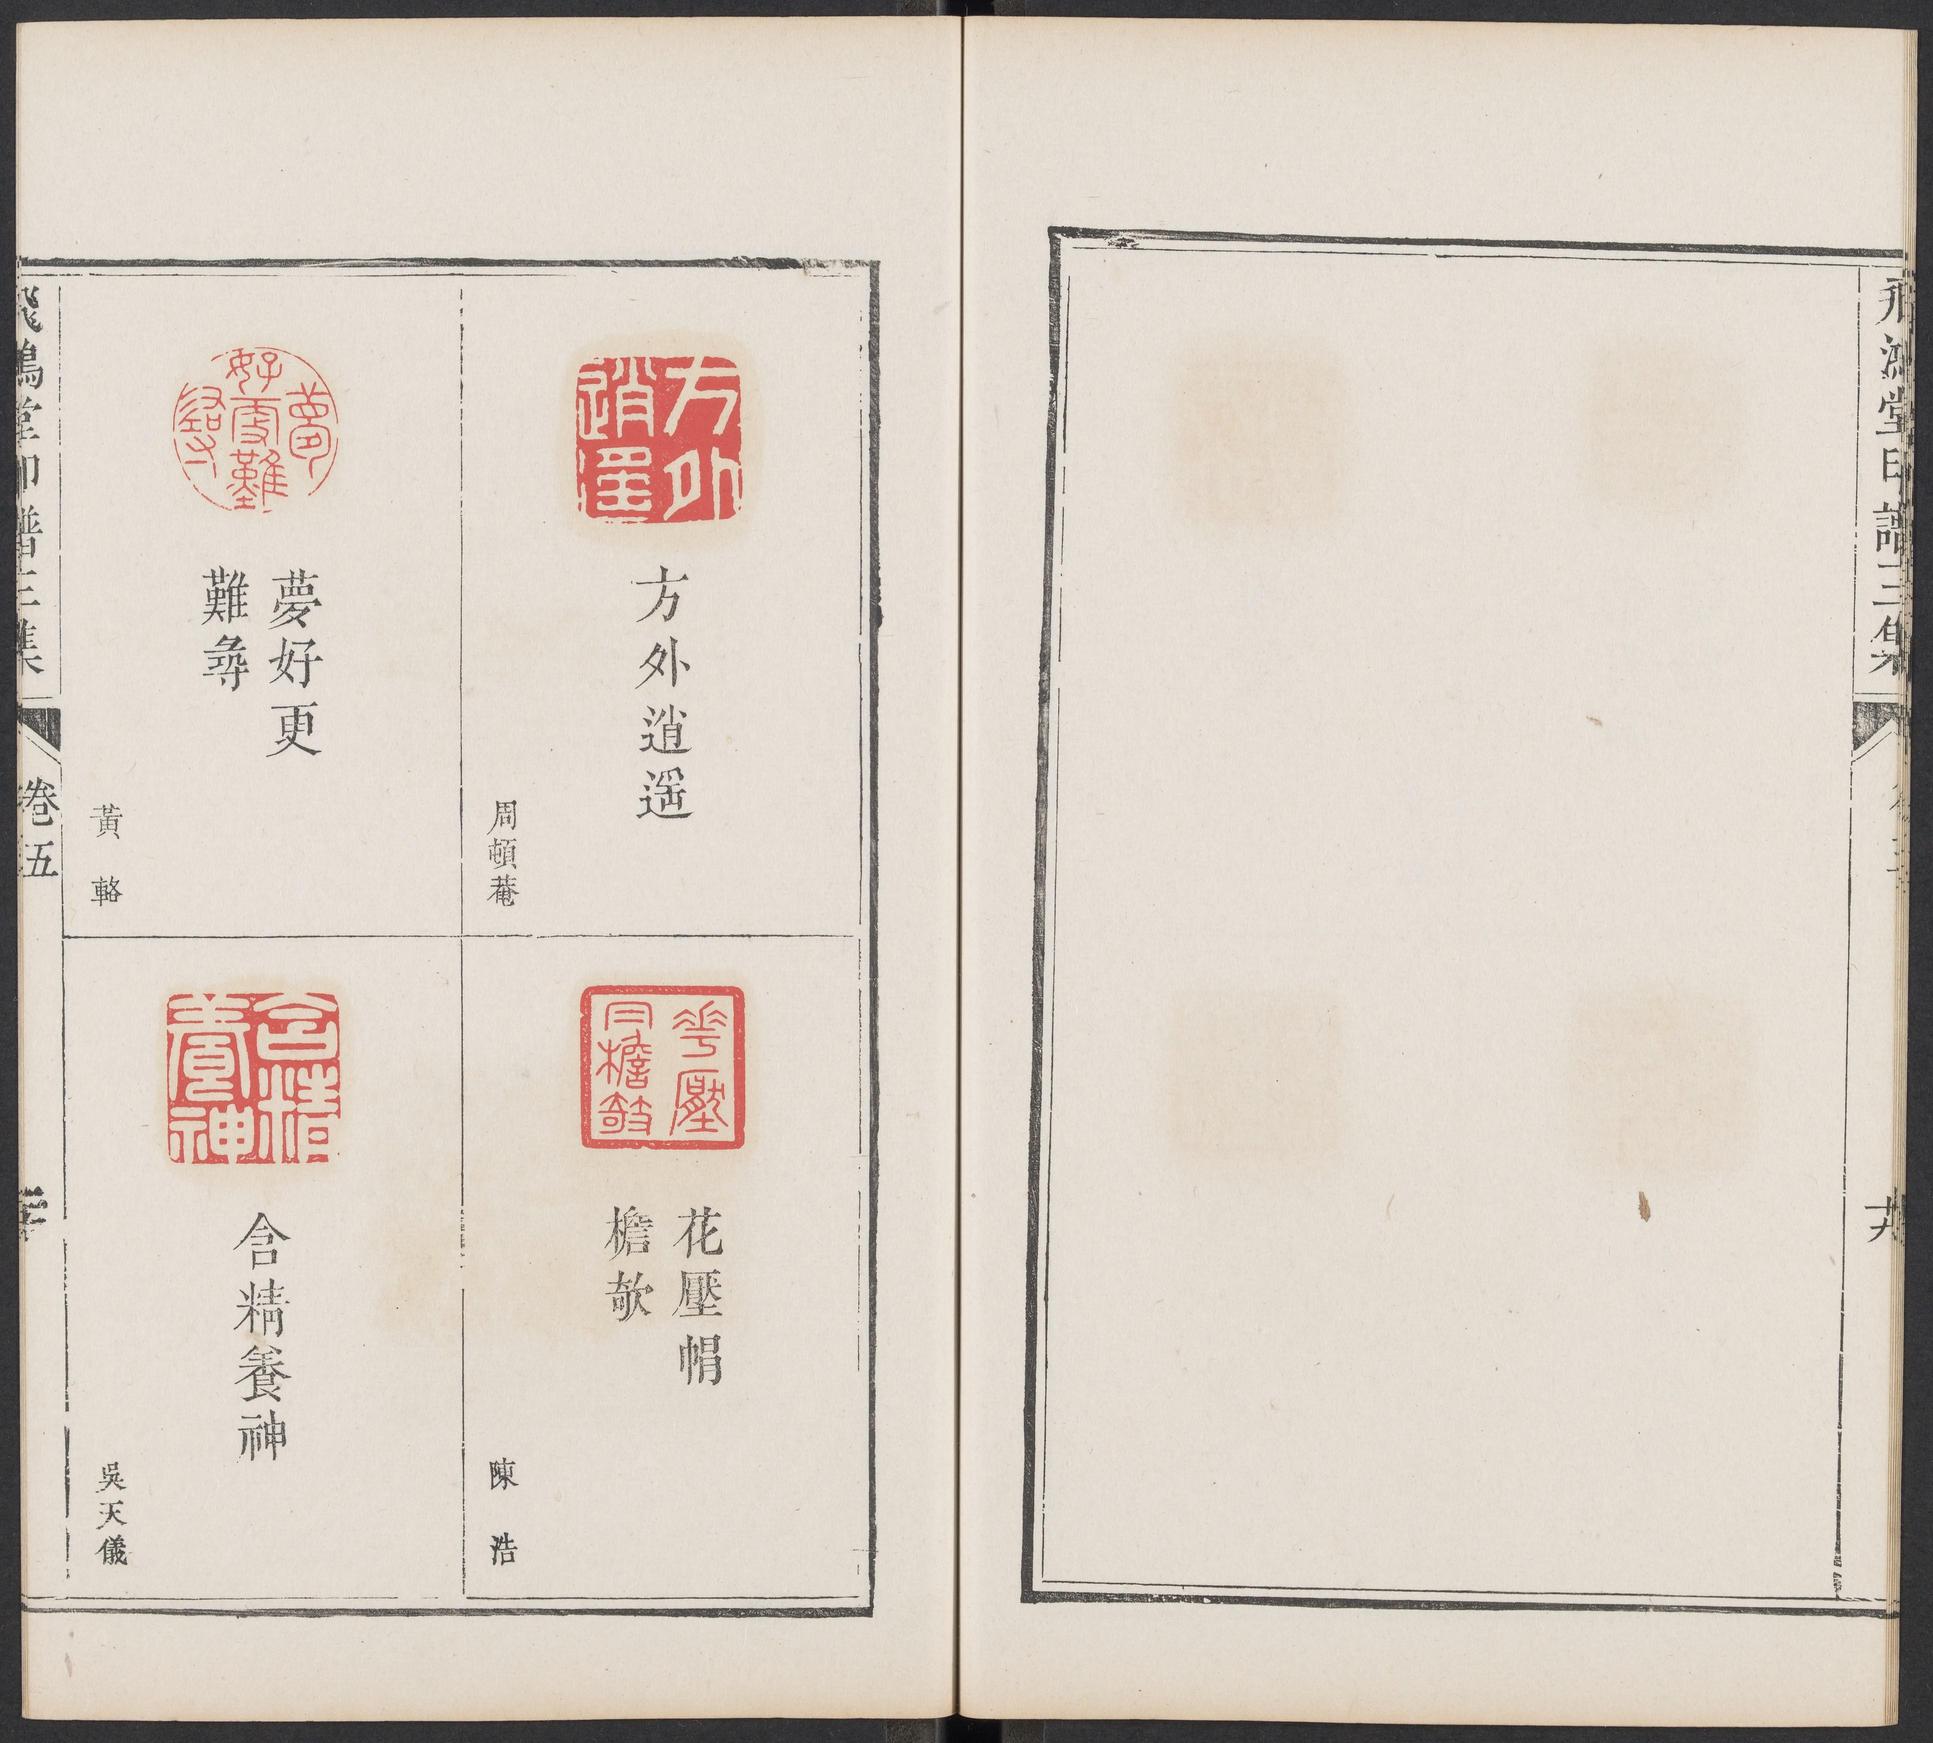 飛鴻堂印譜三集
方外逍遥
方外逍遥
周頓菴
花壓帽檐欹
花壓帽
檐欹
陳浩
夢好更難尋
夢好更
難尋
黃輅
含精養神
含精養神
吳天儀
飛鴻堂印譜三集
卷五